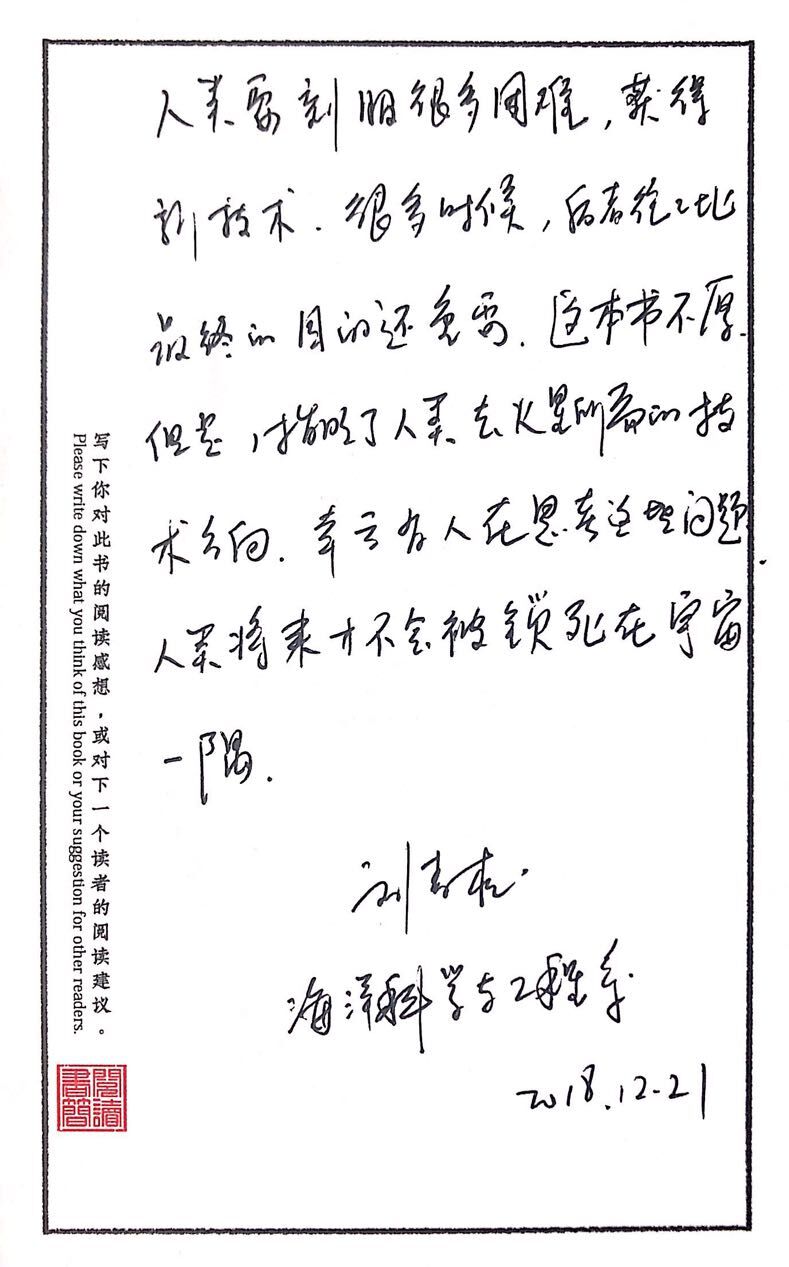 人类要刻服很多困难，获得
新技术．很多时候，后者往往比
最终的目的还重要．这本书不厚．
但是，指明了人类去火星所需的技
术方向．幸亏有人在思考这些问题．
人类将来才不会被锁死在宇宙
一隅．
刘青松．
海洋科学与工程系
2018.12.21
写下你对此书的阅读感想，或对下一个读者的阅读建议。
Please write down what you think of this book or your suggestion for other readers.
閱讀
書簡